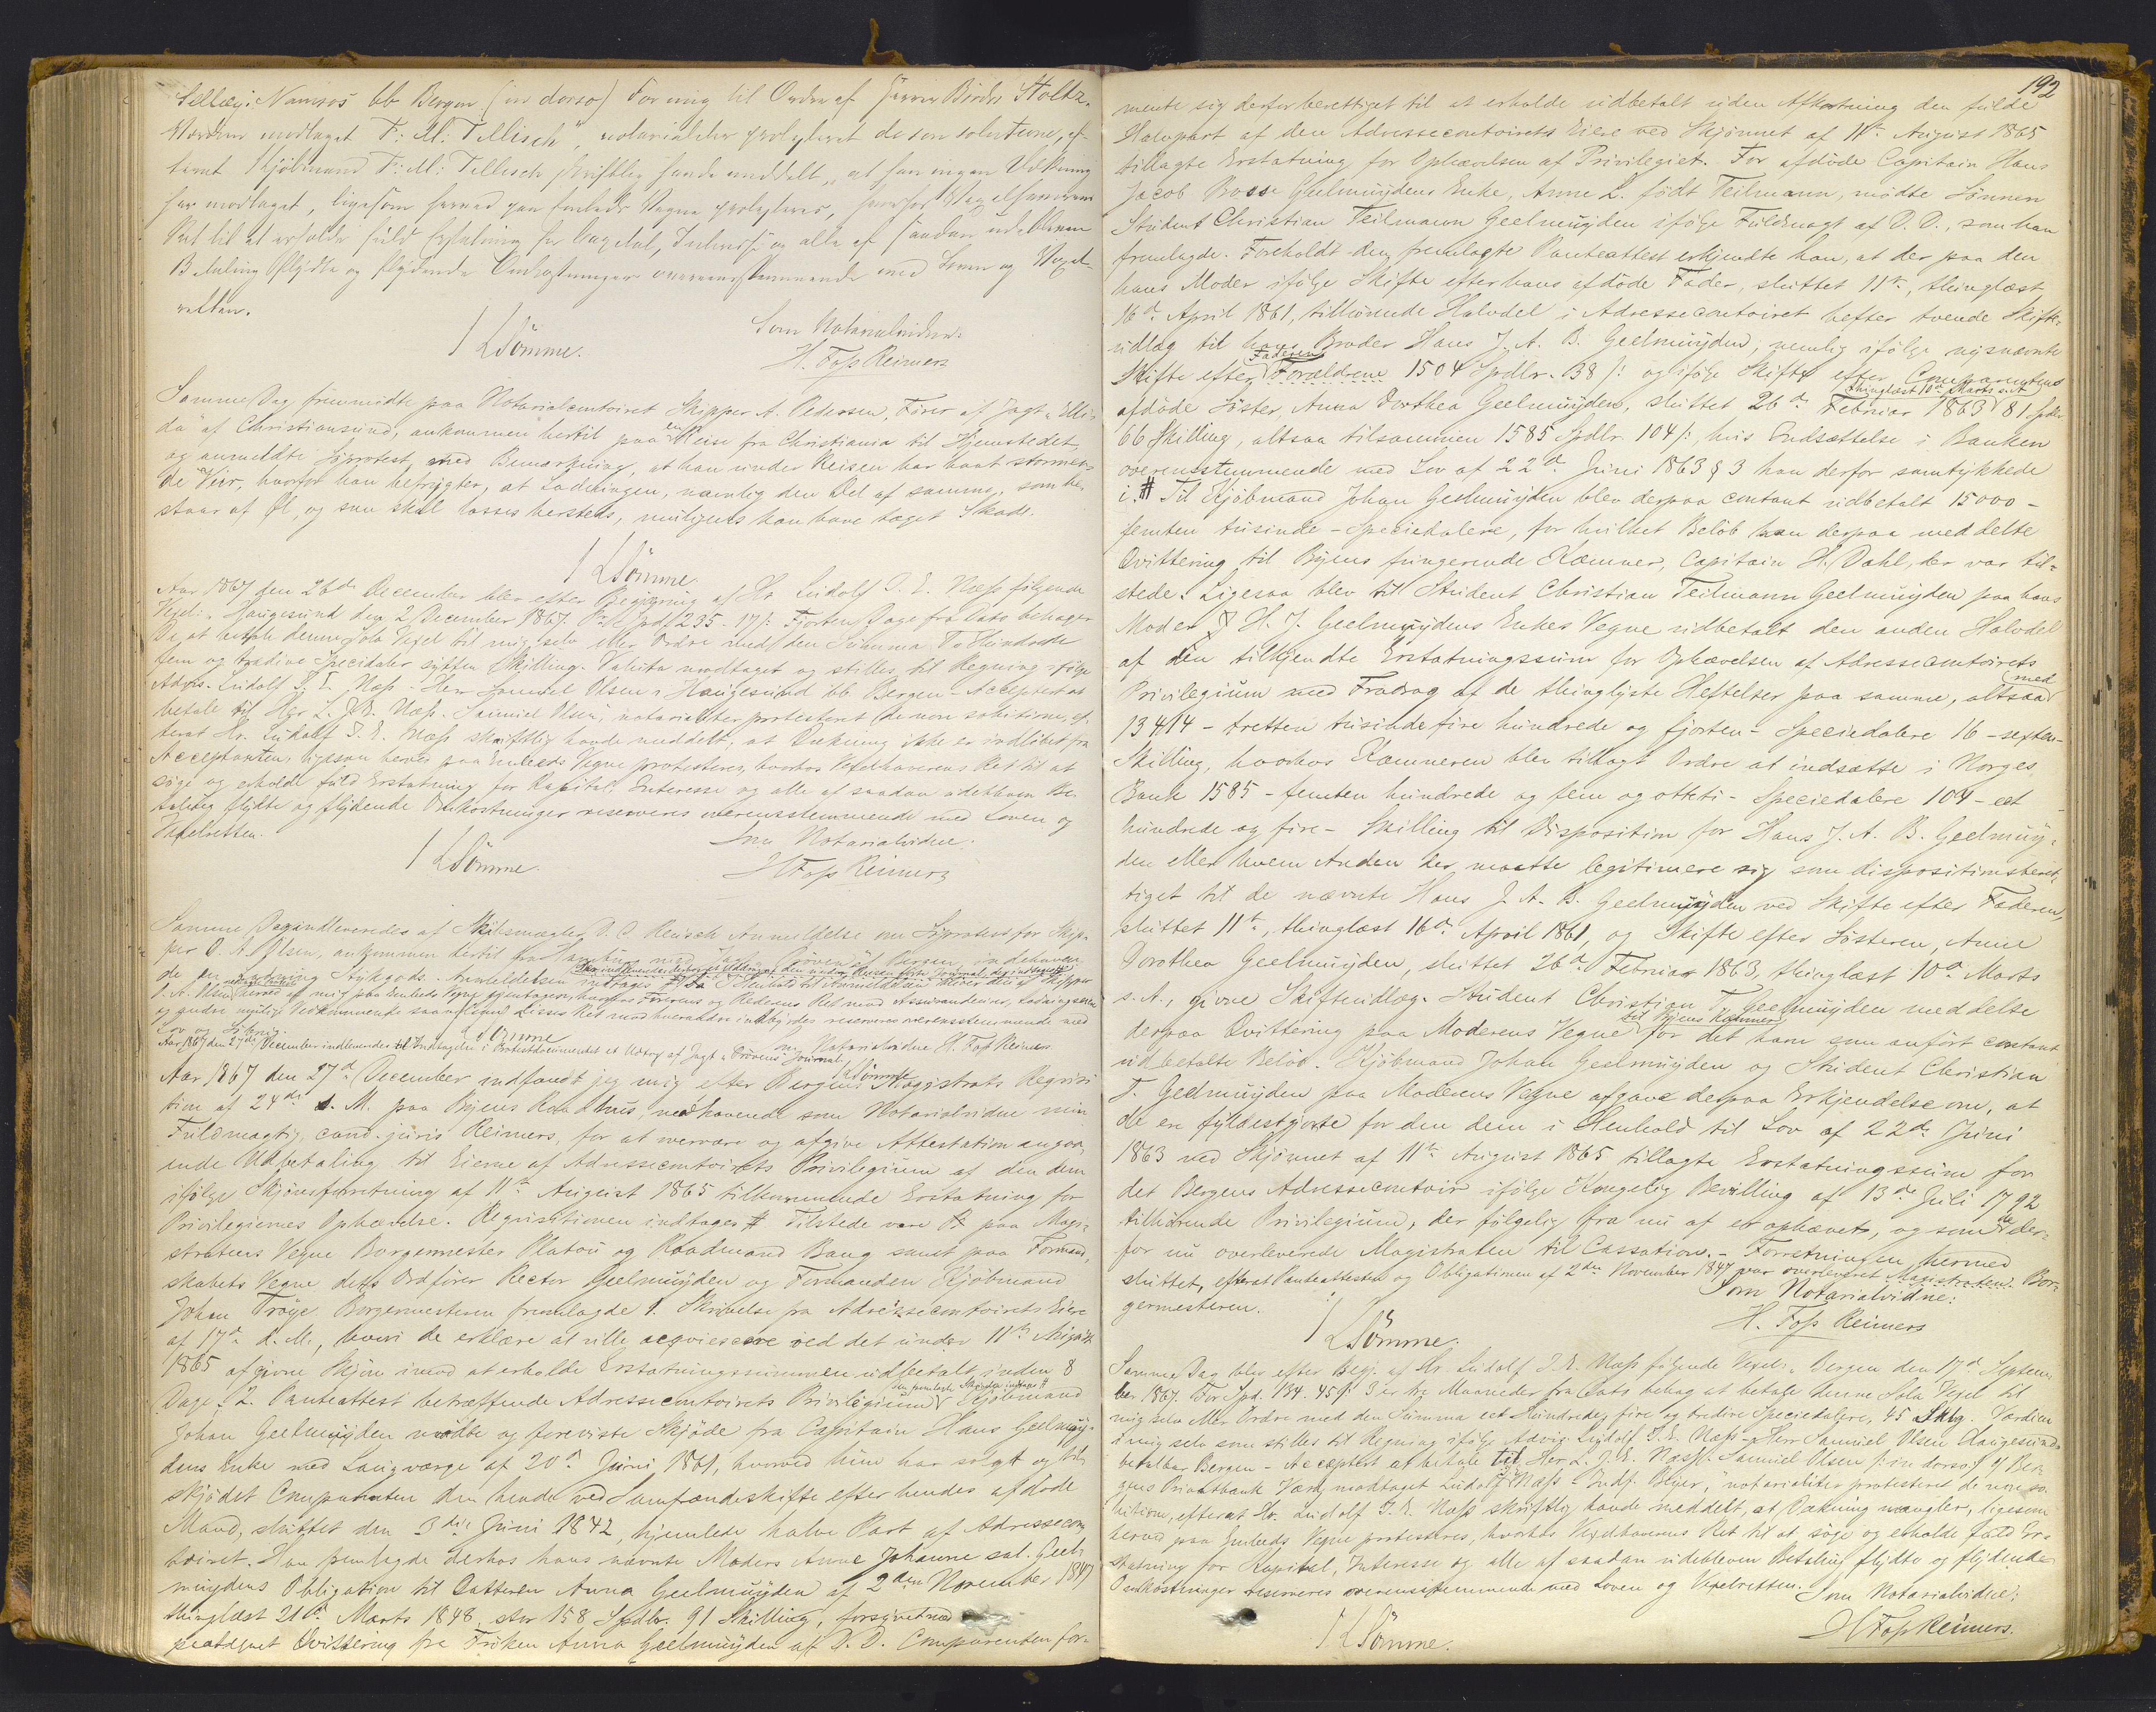 Tellisch Namsos bb Bergen (in dorso) For mig til Ordre af Herrer Brødr Stoltz.
Værdien modtaget F: M: Tellisch", notarialiter protesteret de non solutione, ef-
terat Kjøbmand F: M: Tellisch skriftlig havde meddelt, at han ingen Dækning
har modtaget, ligesom herved paa Embeds Vegne protesteres, hvorhos Vexelhaverens
Ret til at erholde fuld Erstatning for Capital, Interesse og alle af saadan udebleven
Betaling flydte og flydende Omkostninger overensstemmende med Loven og Vexel-
retten.
Som Notarialvidne:
LSömme. H. Foss Reimers
Samme Dag fremmødte paa Notarialcontoiret Skipper A. Pedersen, Fører af Jagt "Elli-
da" af Christiansund, ankommen hertil paa en Reise fra Christiania til Hjemstedet,
og anmeldte Søprotest, med Bemærkning, at han under Reisen har havt stormen-
de Veir, hvorfor han betrygter, at Ladningen, nemlig den Del af samme, som be-
staar af Øl, og som skal losses hersteds, muligens kan have taget Skade.
LSömme.
Aar 1867 den 26de December blev efter Begjæring af Hr. Ludolf J. E. Næss følgende
Vexel: "Haugesund den 2 December 1867. Pr. Spd. 235. 17 s: Fjorten Dage fra Dato behager
De at betale denne Sola Vexel til mig selv eller Ordre med den Summa To Hundrede
fem og tredive Speciedaler sytten Skilling. Valuta modtaget og stilles til Regning ifølge
Advis. Ludolf J. E. Næss. Herr Samuel Olsen i Haugesund bb Bergen - Accepteret at
betale til Her L. J. E. Næss. Samuel Olsen", notarialiter protesteret de non solutione, ef-
terat Hr. Ludolf J. E. Næss skriftlig havde meddelt, at Dækning ikke er indløbet fra
Acceptanten, ligesom herved paa Embeds Vegne protesteres, hvorhos Vexelhaverens Ret til at
søge og erholde fuld Erstatning for Kapital, Interesse og alle af saadan udebleven Be-
taling flydte og flydende Omkostninger reserveres overensstemmende med Loven og
Vexelretten. Som Notarialvidne.
LSömme. H Foss Reimers
Samme Dag indleveredes af Skibsmægler D. C. Reusch Anmeldelse om Søprotest for Skip-
per O. A. Olsen, ankommen hertil fra Hamburg med Jagt Prøven af Bergen, indehaven-
de en Ladning Stykgods. Anmeldelsen indtages # I Henhold til Anmeldelsen bliver den af Skipper
O. A. Olsen herved af mig paa Embeds Vegne gjentagen, hvorhos Førerens og Rederens Ret mod Assurandeurer, Ladningseiere
og andre mulige Vedkommende saavelsom Disses Ret mod hverandre indbyrdes reserveres overensstemmende med
Lov og Sædvane. LSömme som Notarialvidne H. Foss Reimers
Aar 1867 den 27de December indleveredes til Indtagelse i Protestdocumentet et Udtog af Jagt "Prövens" Journal. LSömme
Aar 1867 den 27de December indfandt jeg mig efter Bergens Magistrats Reqvisi-
tion af 24de d. M. paa Byens Raadhus, medhavende som Notarialvidne min
Fuldmægtig, cand. juris Reimers, for at overvære og afgive Attestation angaa-
ende Udbetaling til Eierne af Adressecontoirets Privilegium af den dem
ifølge Skjønsforretning af 11te August 1865 tilkommende Erstatning for
Privilegiernes Ophævelse. Reqvisitionen indtages # Tilstede vare paa Magi-
stratens Vegne Borgermester Platou og Raadmand Bang samt paa Formand-
skabets Vegne dets Ordfører Rector Geelmuyden og Formanden Kjøbmand
Johan Trøye. Borgermesteren fremlagde 1. Skrivelse fra Adressecontoirets Eiere
af 17de d. M., hvori de erklære at ville acqviescere ved det under 11te August
1865 afgivne Skjøn imod at erholde Erstatningssummen udbetalt inden 8
Dage. 2. Panteattest betræffende Adressecontoirets Privilegium den fremlagte Skrivelse indtages # Kjøbmand
Johan Geelmuyden mødte og foreviste Skjøde fra Capitain Hans Geelmuy-
dens Enke med Laugværge af 20de Juni 1861, hvorved hun har solgt og til-
skjødet Comparenten den hende ved Samfrændeskifte efter hendes afdøde
Mand, sluttet den 3die Juni 1842, hjemlede halve Part af Adressecon-
toiret. Han fremlagde derhos hans nævnte Moders Anne Johanne sal. Geel-
muydens Obligation til Datteren Anna Geelmuyden af 2den November 1847
thinglæst 21de Marts 1848, stor 158 Spdlr. 91 Skilling, forsynet med
paategnet Qvittering fra Frøken Anna Geelmuyden af D. D. Comparenten for-
192
mente sig derfor berettiget til at erholde udbetalt uden Afkortning den fulde
Halvpart af den Adressecontoirets Eiere ved Skjønnet af 11te August 1865
tillagte Erstatning for Ophævelsen af Privilegiet. For afdøde Capitain Hans
Jacob Bosse Geelmuydens Enke, Anne L. født Teilmann, mødte Sønnen
Student Christian Teilmann Geelmuyden ifølge Fuldmagt af D. D., som han
fremlagde. Foreholdt den fremlagte Panteattest erkjendte han, at der paa den
hans Moder ifølge Skifte efter hans afdøde Fader, sluttet 11te, thinglæst
16de April 1861, tilhørende Halvdel i Adressecontoiret hefter tvende Skifte-
udlæg til hans Broder Hans J. A. B. Geelmuyden, nemlig ifølge nysnævnte
Skifte efter Faderen Forældrene 1504 Spdlr. 38 s: og ifølge Skifte efter Comparentens
afdøde Søster, Anna Dorthea Geelmuyden, sluttet 26de Februar 1863 thinglæst 10de Marts s. A. 81 Spdlr.
66 Skilling, altsaa tilsammen 1585 Spdlr. 104 s:, hvis Indsættelse i Banken
overensstemmende med Lov af 22de Juni 1863 § 3 han derfor samtykkede
i. # Til Kjøbmand Johan Geelmuyden blev derpaa contant udbetalt 15000 -
femten tusinde - Speciedalere, for hvilket Beløb han derpaa meddelte
Qvittering til Byens fungerende Kæmner, Capitain H. Dahl, der var til-
stede. Ligesaa blev til Student Christian Teilmann Geelmuyden paa hans
Moder H. J. Geelmuydens Enkes Vegne udbetalt den anden Halvdel
af den tilkjendte Erstatningssum for Ophævelsen af Adressecontoirets
Privilegium med Fradrag af de thinglyste Heftelser paa samme, altsaa med
13414 - tretten tusinde fire hundrede og fjorten - Speciedalere 16 - sexten -
Skilling, hvorhos Kæmneren blev tillagt Ordre at indsætte i Norges
Bank 1585 - femten hundrede og fem og otteti - Speciedalere 104 - eet
hundrede og fire - Skilling til Disposition for Hans J. A. B. Geelmuy-
den eller hvem Anden der maatte legitimere sig som dispositionsberet-
tiget til de nævnte Hans J. A. B. Geelmuyden ved Skifte efter Faderen,
sluttet 11te, thinglæst 16de April 1861, og Skifte efter Søsteren, Anne
Dorothea Geelmuyden, sluttet 26de Februar 1863, thinglæst 10de Marts
s. A., givne Skifteudlæg. Student Christian T. Geelmuyden meddelte
derpaa Qvittering paa Moderens Vegne til Byens Kæmner for det ham som anført contant
udbetalte Beløb. Kjøbmand Johan Geelmuyden og Student Christian
T. Geelmuyden paa Moderens Vegne afgave derpaa Erkjendelse om, at
de ere fyldestgjorte for den dem i Henhold til Lov af 22de Juni
1863 ved Skjønnet af 11te August 1865 tillagte Erstatningssum for
det Bergens Adressecontoir ifølge Kongelig Bevilling af 13de Juli 1792
tilhørende Privilegium, der følgelig fra nu af er ophævet, og som de der-
for nu overleverede Magistraten til Cassation. - Forretningen hermed
sluttet, efterat Panteattesten og Obligationen af 2den November 1847 var overleveret Magistraten. Bor-
germesteren. Som Notarialvidne:
LSömme. H. Foss Reimers
Samme Dag blev efter Begj. af Hr. Ludolf J. E. Næss følgende Vexel: "Bergen den 17de Septem-
ber 1867. For Spd. 134. 45 s: 3 er tre Maaneder fra Dato behag at betale denne Sola Vexel til
mig selv eller Ordre med den Summa eet Hundrede, fire og tredive Speciedalere, 45 Sklg. Værdien
i mig selv som stilles til Regning ifølge Advis. Ludolf J. E. Næss - Herr Samuel Olsen Haugesund
betalbar Bergen - Accepteret at betale til Her L. J. E. Næss. Samuel Olsen (: in dorso:) til Ber-
gens Privatbank Værdi modtaget Ludolf J. E. Næss - Indf. Beyer", notarialiter protesteret de non so-
lutione, efterat Hr. Ludolf J. E. Næss skriftlig havde meddelt, at Dækning mangler, ligesom
herved paa Embeds Vegne protesteres, hvorhos Vexelhaverens Ret til at søge og erholde fuld Er-
statning for Kapital, Interesse og alle af saadan udebleven Betaling flydte og flydende
Omkostninger reserveres overensstemmende med Loven og Vexelretten. Som Notarialvidne:
LSömme. H Foss Reimers.